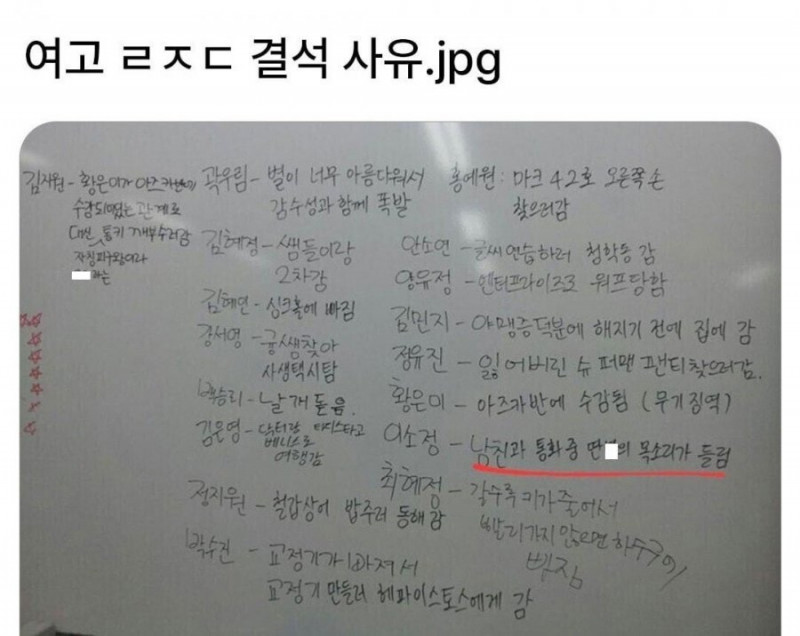 여고 ㄹㅈㄷ 결석 사유.jpg
김지원 - 황은미가 아즈카반에
수감되어있는 관계로
대신 통키 개부수러감
자칭피구왕이라
라는
곽우림 - 별이 너무 아름다워서
감수성과 함께 폭발
김혜정 - 쌤들이랑
2차감
김혜인 - 싱크홀에 빠짐
강서영 - 쌤찾아
사생택시탐
승리 - 날개 돋음
김은영 - 닥터랑 타디스타고
베니스로
여행감
정지원 - 철갑상어 밥주러 동해감
박수진 - 교정기가 빠져서
교정기 만들러 헤파이스토스에게 감
홍예원 : 마크 42호 오른쪽 손
찾으러감
안소연 - 글씨연습하러 청학동 감
양유정 - 엔터프라이즈로 워프당함
김민지 - 야맹증덕분에 해지기 전에 집에 감
정유진 - 잃어버린 슈퍼맨 팬티찾으러감.
황은미 - 아즈카반에 수감됨 (무기징역)
이소정 - 남친과 통화중 의 목소리가 들림
최혜정 - 갈수록 키가줄어서
빨리가지 않으면 하수구에
빠짐